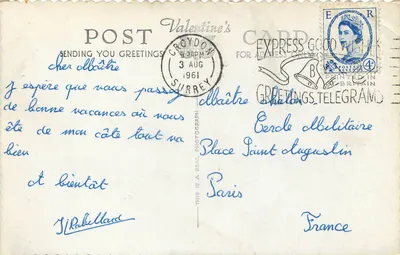 POST Valentine's CARD
SENDING YOU GREETINGS
FOR
E R
CROYDON
PM
3 AUG
1961
SURREY
EXPRESS GOOD
GREETINGS TELEGRAMS
4D
cher Maître
J espère que vous passez
de bonne vacances où vous
ête de mon côte tout va
bien
A bientôt
Maître
Cercle Militaire
Place Saint Augustin
Paris
France